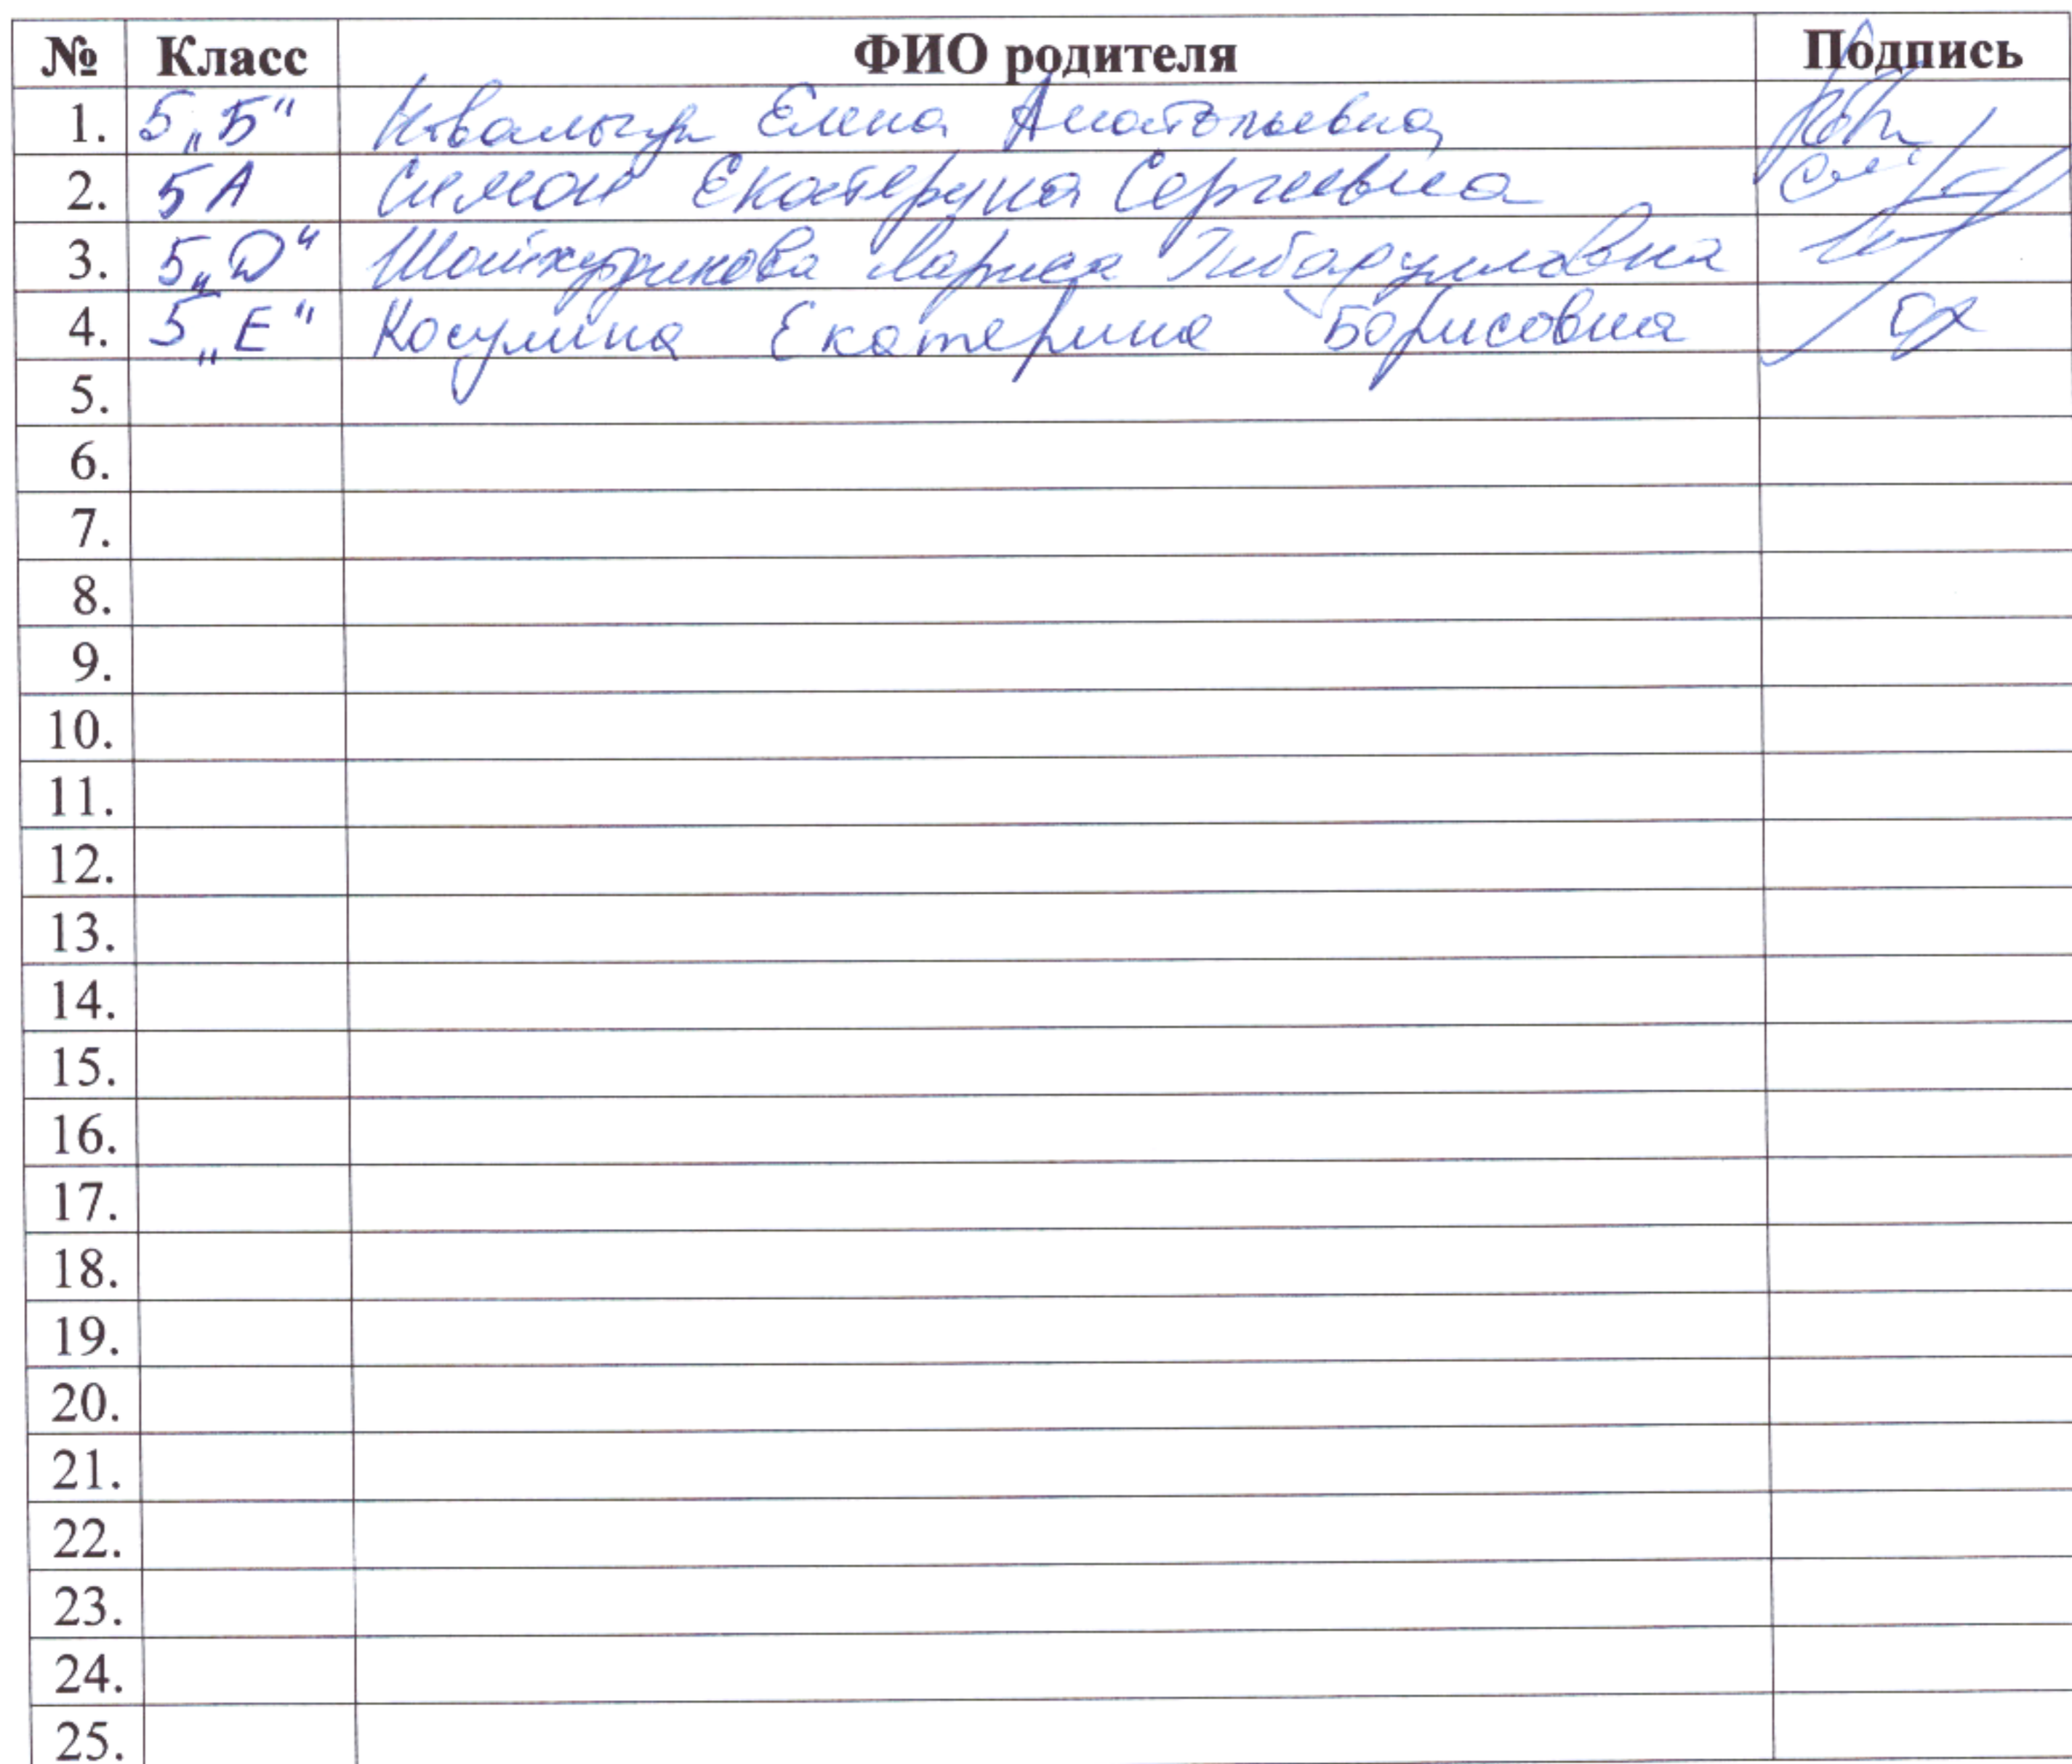 № Класс ФИО родителя Подпись
1. 5 „Б“ Елена Анатольевна
2. 5 А Симон Екатерина Сергеевна
3. 5 „D“ Лариса
4. 5 „Е“ Косулина Екатерина Борисовна
5.
6.
7.
8.
9.
10.
11.
12.
13.
14.
15.
16.
17.
18.
19.
20.
21.
22.
23.
24.
25.